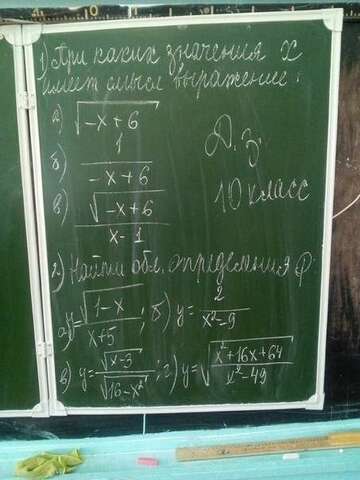 1) При каких значения x
имеет смысл выражение:
а) √(-x+6)
б) 1/(-x+6)
в) √(-x+6)/(x-1)
Д.З.
10 класс
2) Найти обл. определения ф:
а) y=√((1-x)/(x+5)); б) y=2/(x²-9)
в) y=√(x-3)/√(16-x²); г) y=√((x²+16x+64)/(x²-49))